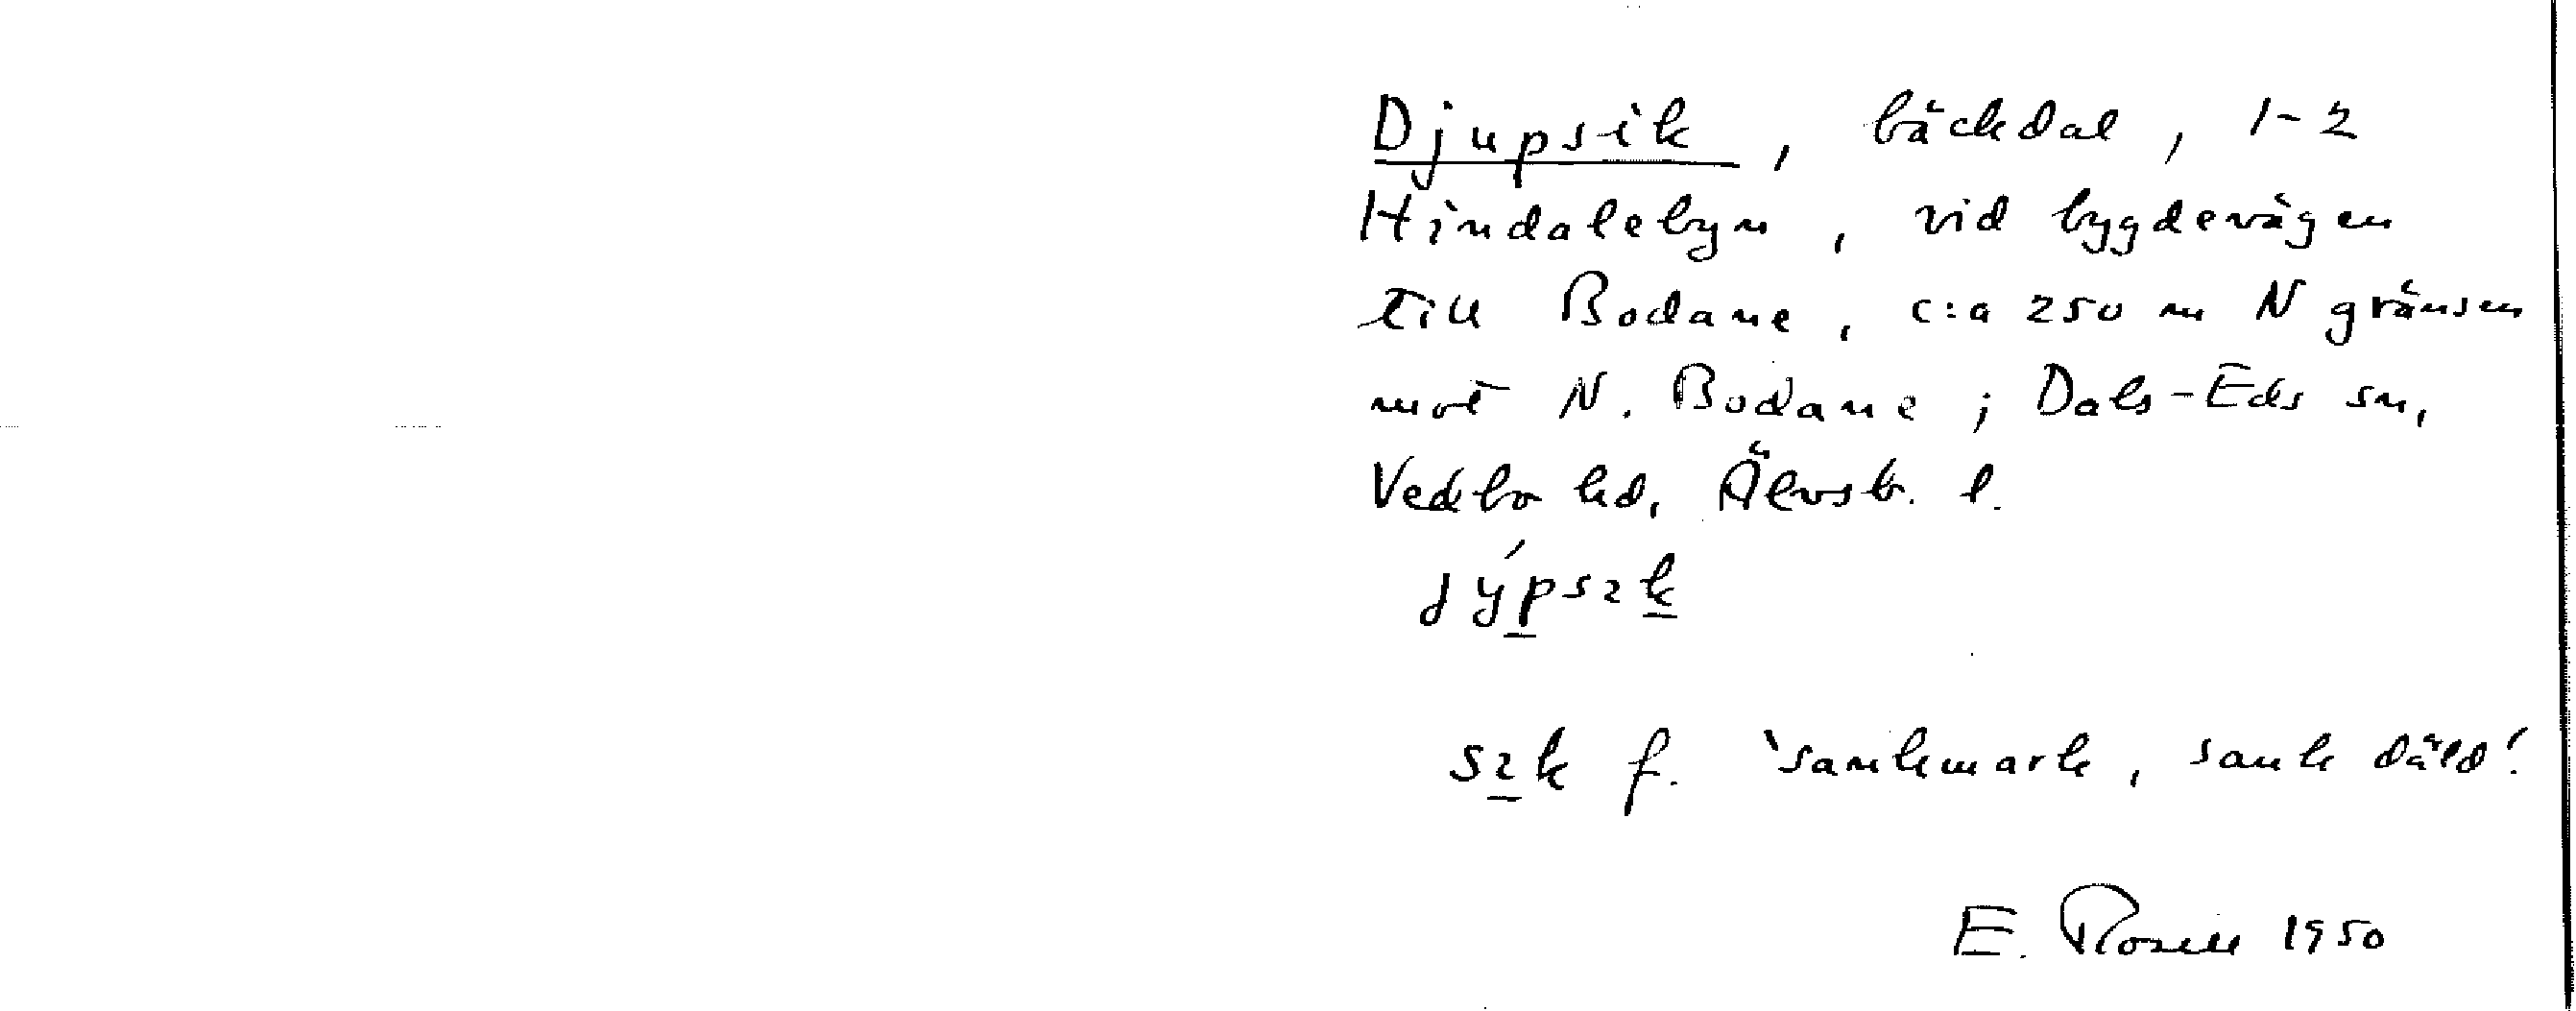 Djupsik, bäckdal, 1-2
Hindalebyn, vid bygdevägen
till Bodane, c:a 250 m N gränsen
mot N. Bodane; Dals-Eds sn,
Vedbo hd, Älvsb. l.
sɩk f. 'sankmark, sank däld'.
E. Rosell 1950